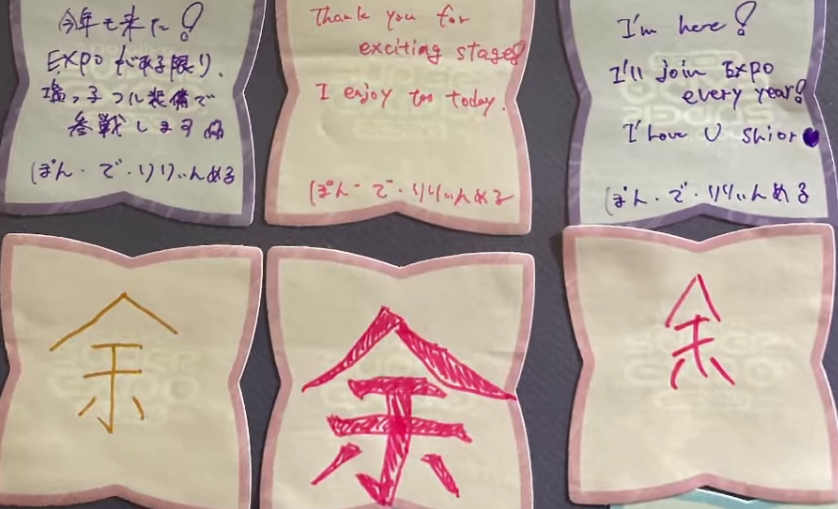 今年も来た!
EXPOがある限り、
塩っ子フル装備で
参戦します
ぽん・で・りりぃんめる
Thank you for
exciting stage!
I enjoy too today.
ぽん・で・りりぃんめる
I'm here!
I'll join EXPO
every year!
I love U shiori
ぽん・で・りりぃんめる
余
余
余